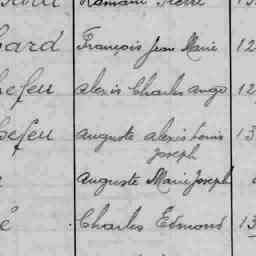 Romain Pierre
bard François Jean Marie 12
hefeu alexis Charles ange 12
hefeu auguste alexis Louis 13
Joseph
auguste Marie Joseph
é Charles Edmond 13